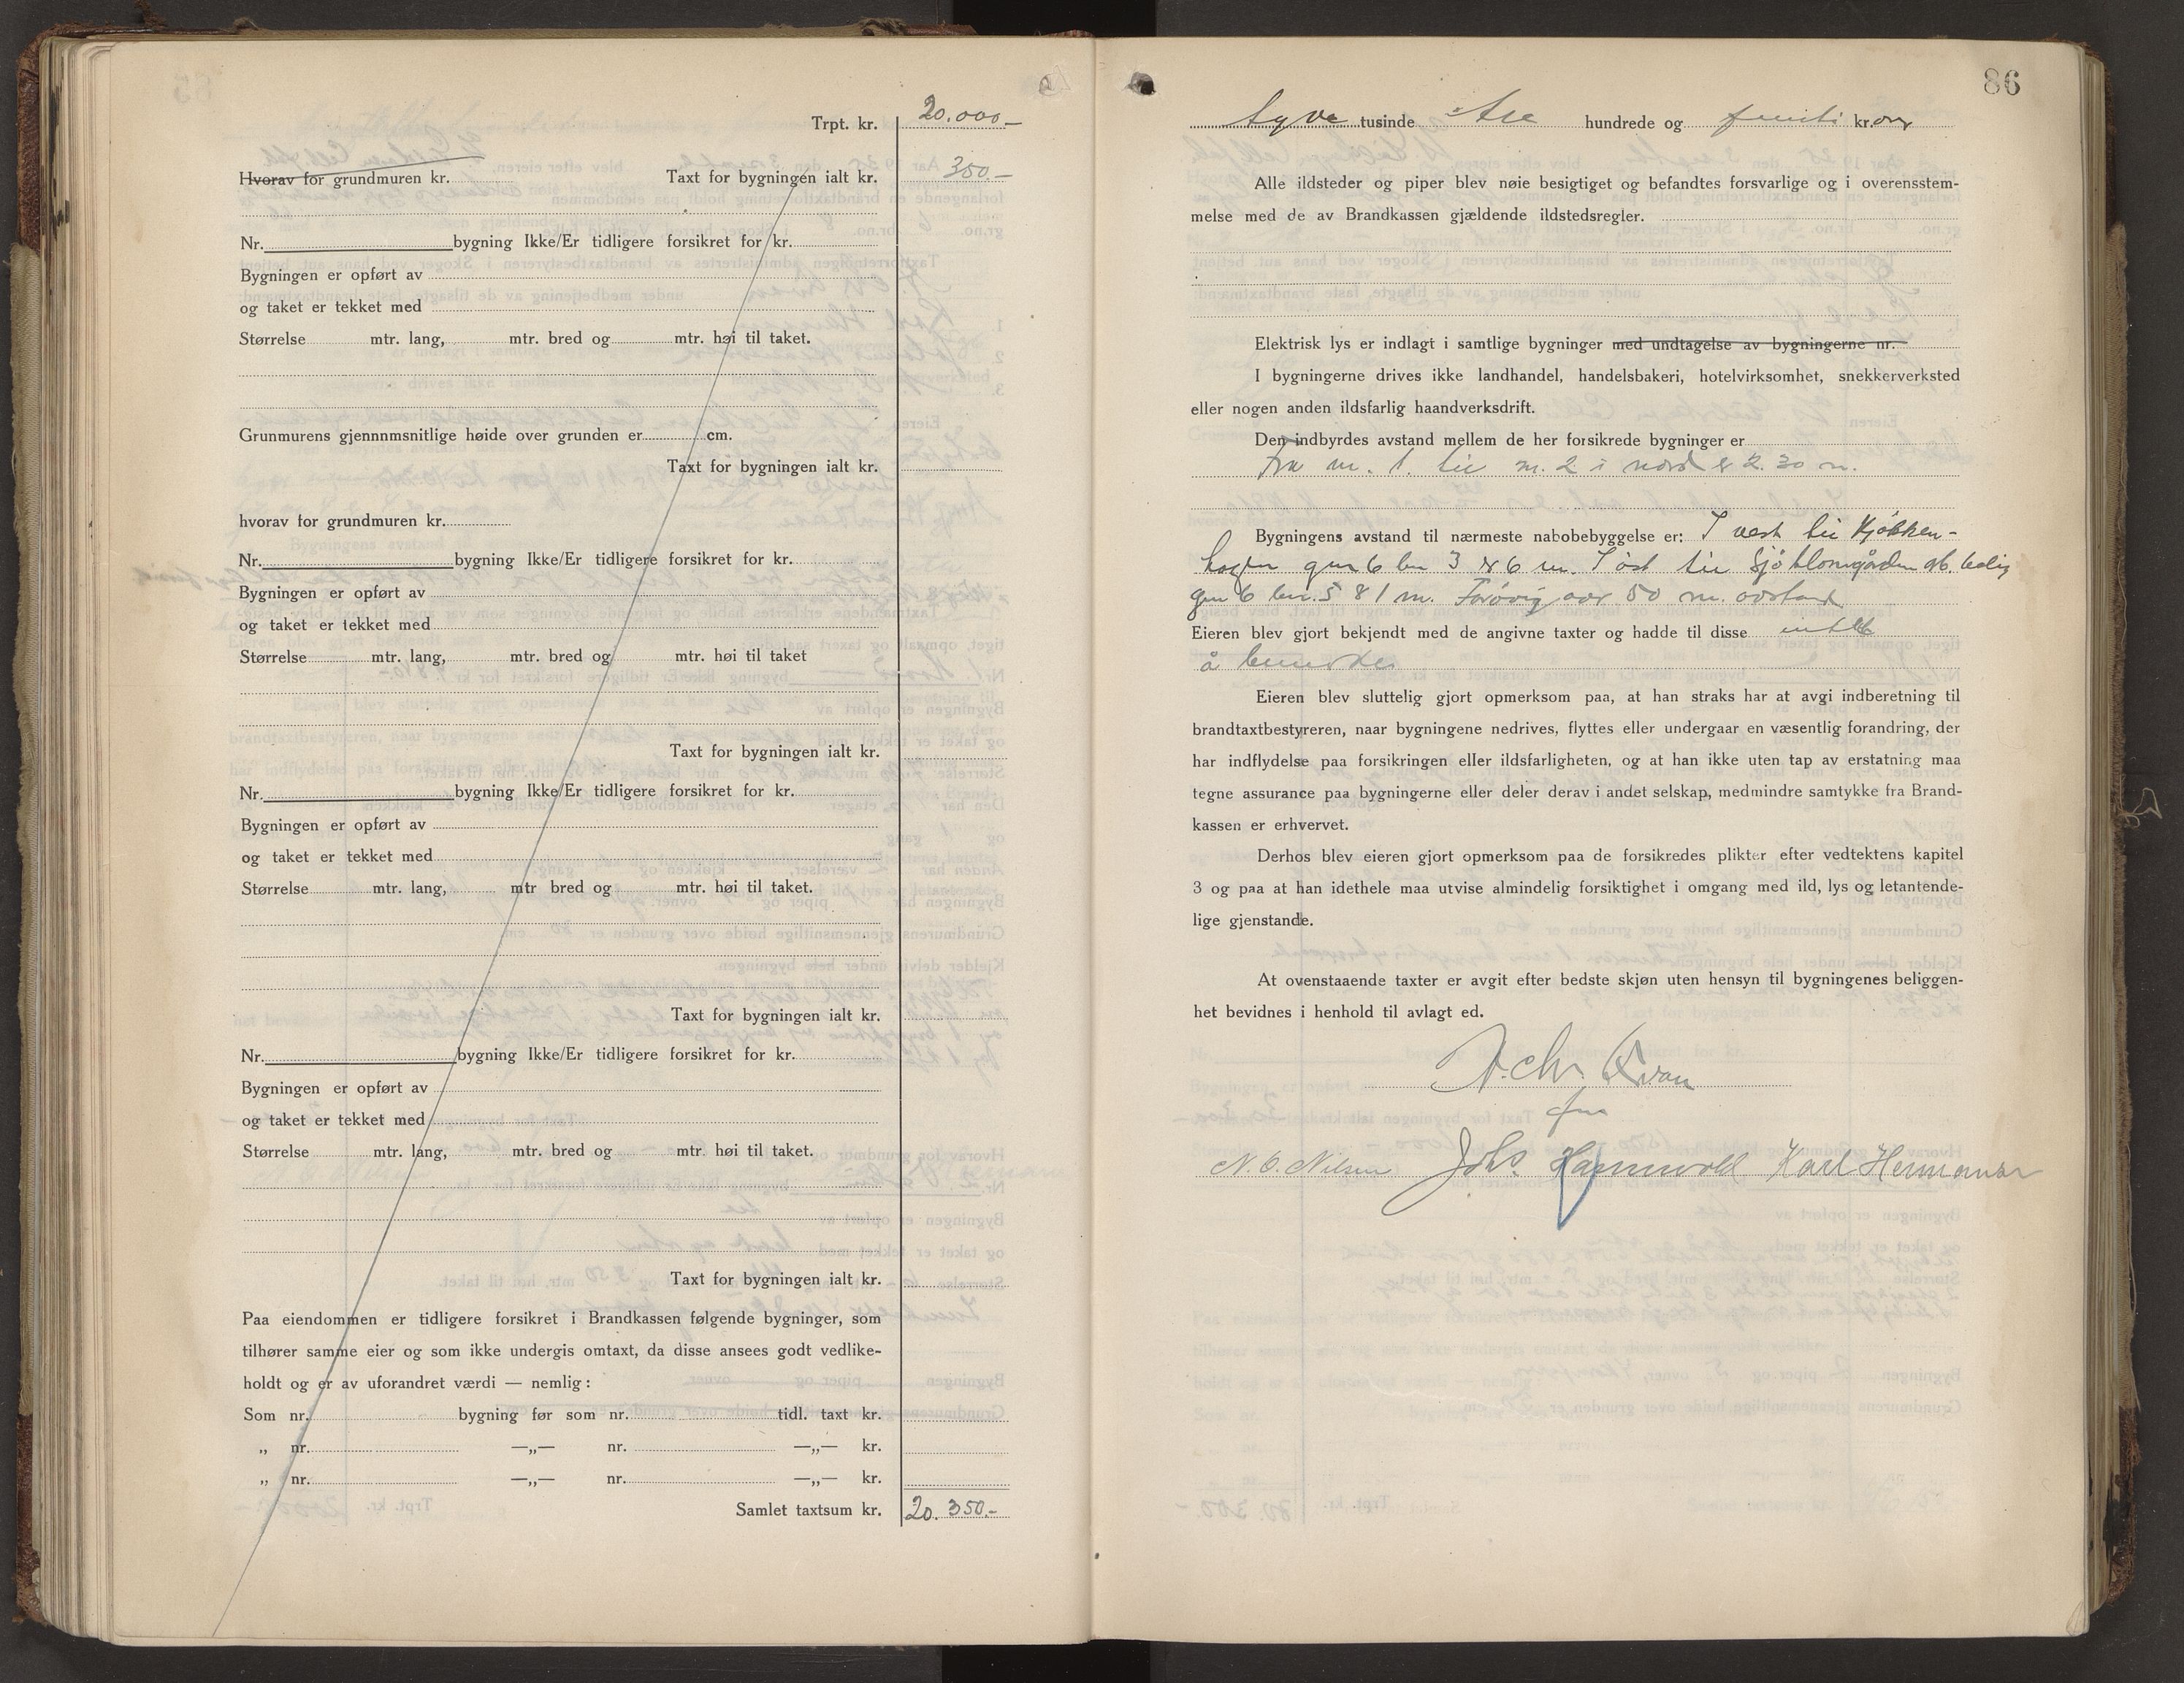 Trpt. kr. 20.000—
Hvorav for grundmuren kr. Taxt for bygningen ialt kr. 350.—
Nr. bygning Ikke/Er tidligere forsikret for kr.
Bygningen er opført av
og taket er tekket med
Størrelse mtr. lang, mtr. bred og mtr. høi til taket.
Grunmurens gjennnmsnitlige høide over grunden er cm.
Taxt for bygningen ialt kr.
hvorav for grundmuren kr.
Nr. bygning Ikke/Er tidligere forsikret for kr.
Bygningen er opført av
og taket er tekket med
Størrelse mtr. lang, mtr. bred og mtr. høi til taket
Taxt for bygningen ialt kr.
Nr. bygning Ikke/Er tidligere forsikret for kr.
Bygningen er opført av
og taket er tekket med
Størrelse mtr. lang, mtr bred og mtr. høi til taket.
Taxt for bygningen ialt kr.
Nr. bygning Ikke/Er tidligere forsikret for kr.
Bygningen er opført av
og taket er tekket med
Størrelse mtr. lang, mtr. bred og mtr. høi til taket.
Taxt for bygningen ialt kr.
Paa eiendommen er tidligere forsikret i Brandkassen følgende bygninger, som
tilhører samme eier og som ikke undergis omtaxt, da disse ansees godt vedlike-
holdt og er av uforandret værdi — nemlig:
Som nr. bygning før som nr. tidl. taxt kr.
„ nr. —„— nr. —„— kr.
„ nr. —„— nr. —„— kr.
Samlet taxtsum kr. 20.350.—
86
tyve tusinde tre hundrede og femti kr.
Alle ildsteder og piper blev nøie besigtiget og befandtes forsvarlige og i overensstem-
melse med de av Brandkassen gjældende ildstedsregler.
Elektrisk lys er indlagt i samtlige bygninger med undtagelse av bygningerne nr.
I bygningerne drives ikke landhandel, handelsbakeri, hotelvirksomhet, snekkerverksted
eller nogen anden ildsfarlig haandverksdrift.
Den indbyrdes avstand mellem de her forsikrede bygninger er
fra nr. 1. til nr. 2 i nord er 2.30 m.
Bygningens avstand til nærmeste nabobebyggelse er: I vest til Kjøkken-
haven gnr 6 bnr 3 46 m. I øst til Sjøblomgården bolig
gnr 6 bnr. 5 81 m. Forøvrig over 50 m. avstand
Eieren blev gjort bekjendt med de angivne taxter og hadde til disse intet
å bemerke
Eieren blev sluttelig gjort opmerksom paa, at han straks har at avgi indberetning til
brandtaxtbestyreren, naar bygningene nedrives, flyttes eller undergaar en væsentlig forandring, der
har indflydelse paa forsikringen eller ildsfarligheten, og at han ikke uten tap av erstatning maa
tegne assurance paa bygningerne eller deler derav i andet selskap, medmindre samtykke fra Brand-
kassen er erhvervet.
Derhos blev eieren gjort opmerksom paa de forsikredes plikter efter vedtektens kapitel
3 og paa at han idethele maa utvise almindelig forsiktighet i omgang med ild, lys og letantende-
lige gjenstande.
At ovenstaaende taxter er avgit efter bedste skjøn uten hensyn til bygningenes beliggen-
het bevidnes i henhold til avlagt ed.
Chr.
N. O. Nilsen Johs. Hammvold Karl Hermansen